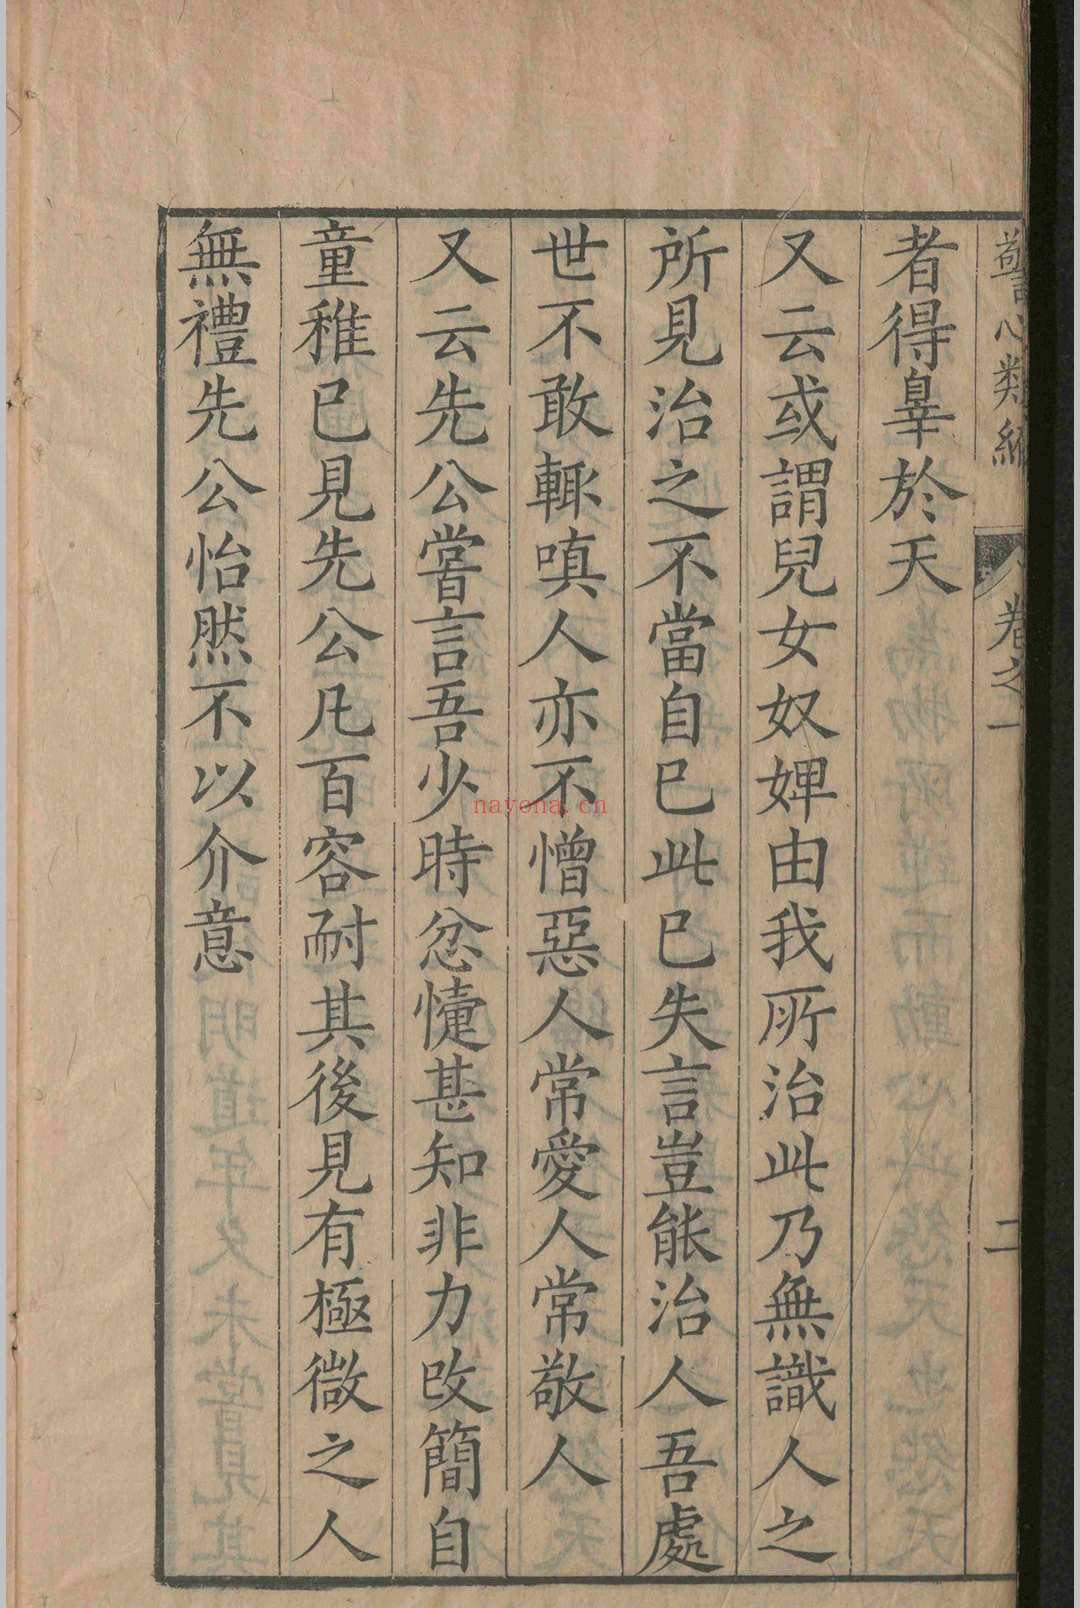 警心類編 卷之一 二
者得辠於天
又云或謂兒女奴婢由我所治此乃無識人之
所見治之不當自已此已失言豈能治人吾處
世不敢輒嗔人亦不憎惡人常愛人常敬人
又云先公嘗言吾少時忿懥甚知非力改簡自
童稚已見先公凡百容耐其後見有極微之人
無禮先公怡然不以介意
nayona.cn